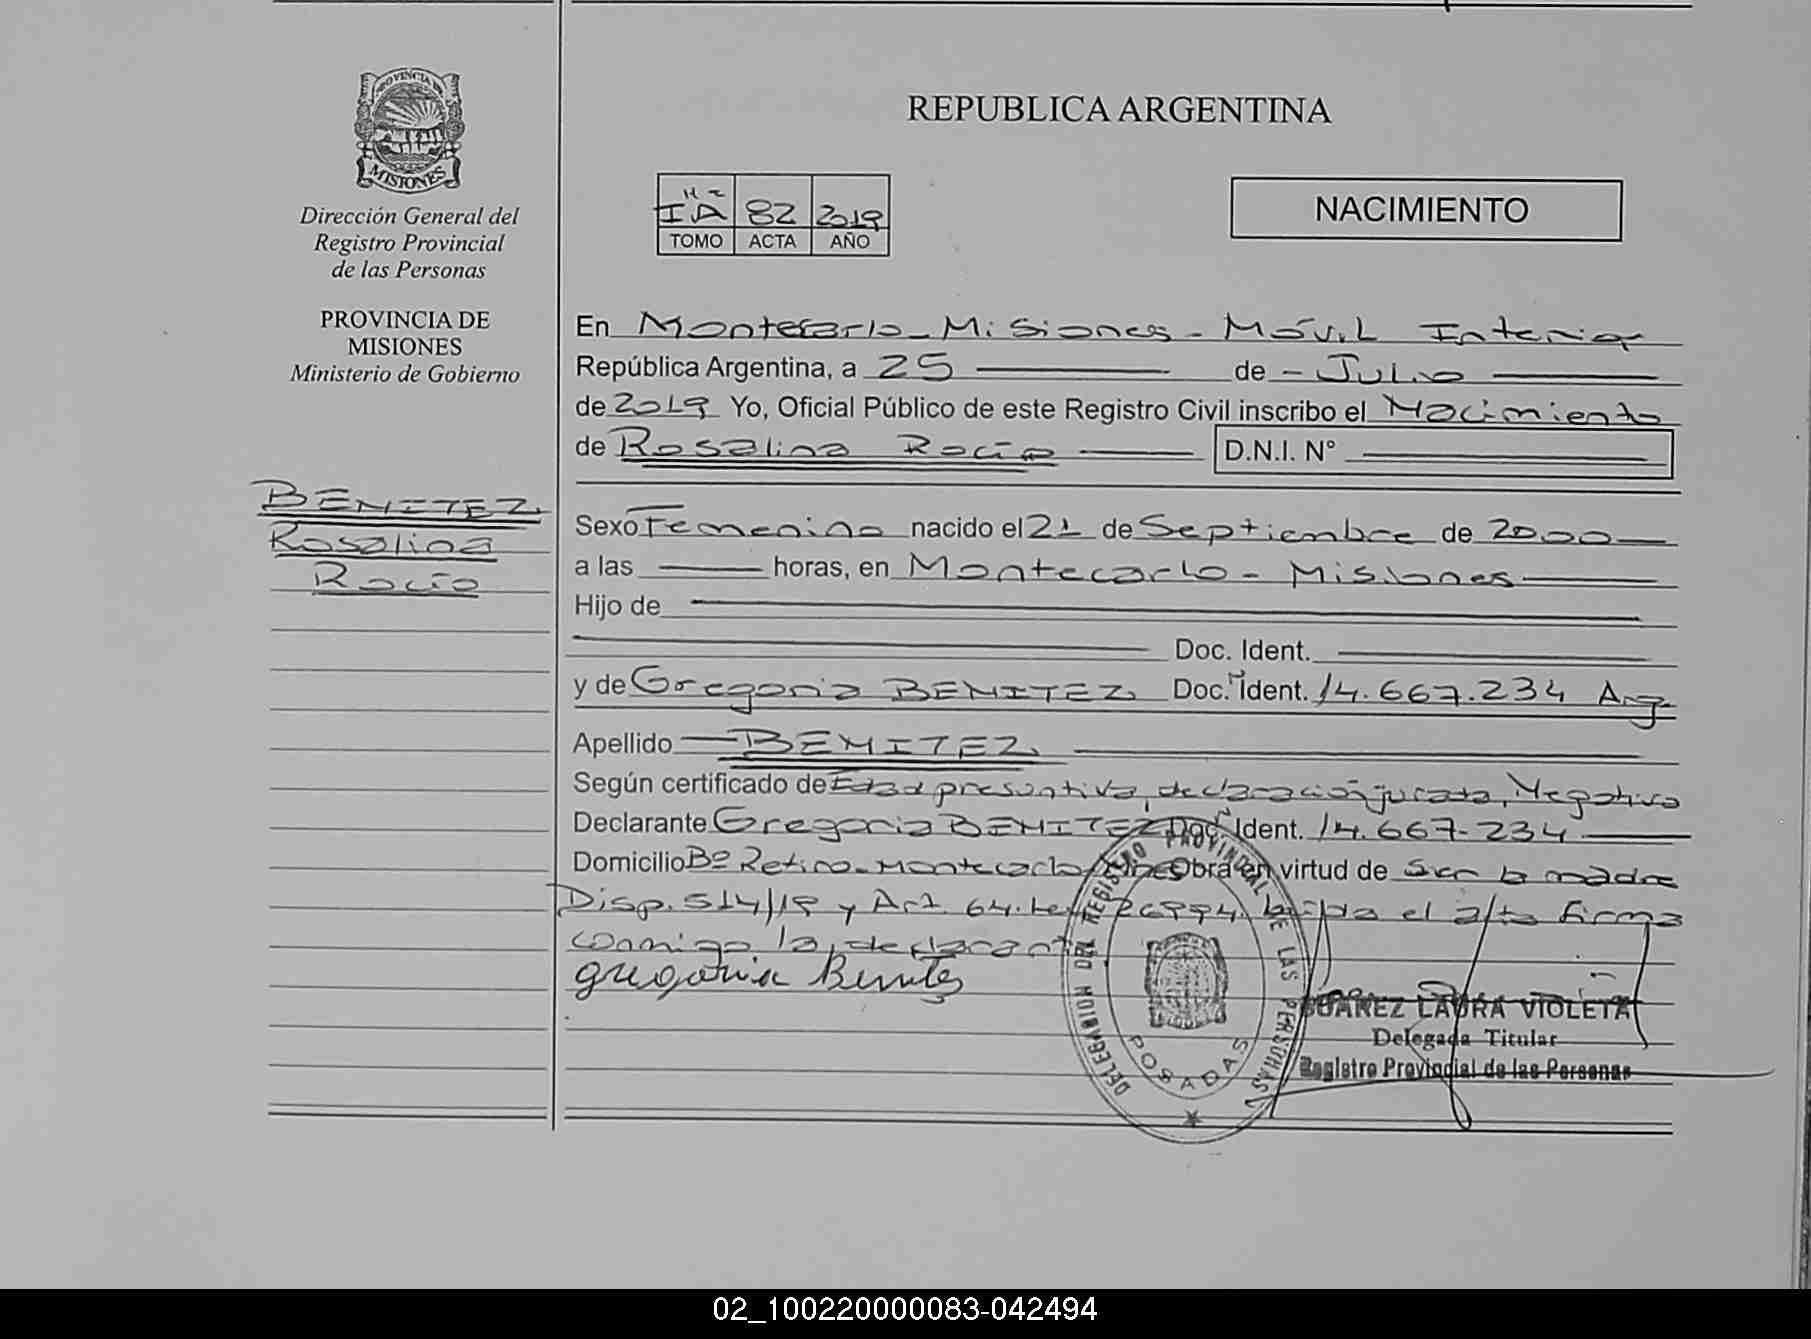 PROVINCIA DE
MISIONES
Dirección General del
Registro Provincial
de las Personas
PROVINCIA DE
MISIONES
Ministerio de Gobierno
BENITEZ
Rosalina
Rocío
REPUBLICA ARGENTINA
82 2019
TOMO ACTA AÑO
NACIMIENTO
En Montecarlo - Misiones - Móvil Interior
República Argentina, a 25 de - Julio
de 2019 Yo, Oficial Público de este Registro Civil inscribo el Nacimiento
de Rosalina Rocío D.N.I. N°
Sexo Femenino nacido el 21 de Septiembre de 2000
a las horas, en Montecarlo - Misiones
Hijo de
Doc. Ident.
y de Gregoria BENITEZ Doc. Ident. 14.667.234 Arg
Apellido BENITEZ
Según certificado de Edad presuntiva, declaración jurada, Negativo
Declarante Gregoria BENITEZ Doc. Ident. 14.667.234
Domicilio Bº Retiro - Montecarlo Mnes Obra en virtud de ser la madre
Disp. 514/19 y Art. 64. Ley 26994. leída el acta firma
conmigo la declarante
gregoria Benites
DELEGACION DEL REGISTRO PROVINCIAL DE LAS PERSONAS
POSADAS
SUAREZ LAURA VIOLETA
Delegada Titular
Registro Provincial de las Personas
02_100220000083-042494